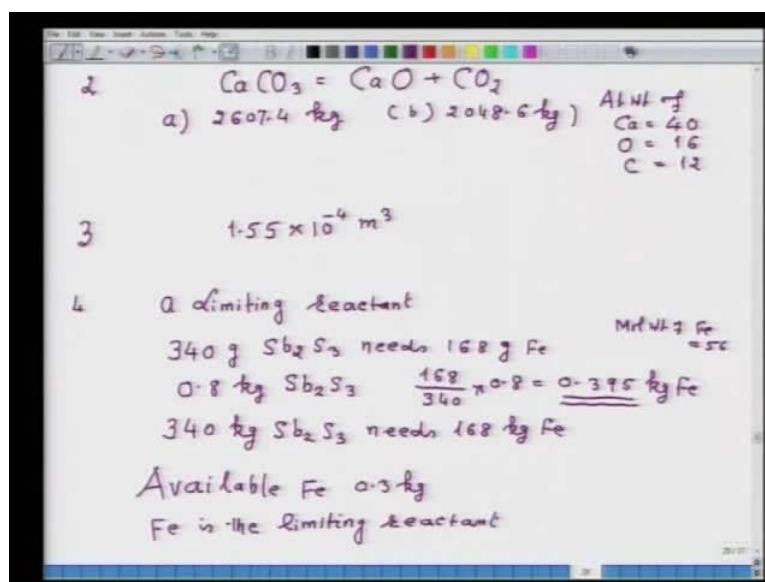 File Edit View Insert Actions Tools Help
2 CaCO₃ = CaO + CO₂
a) 2607.4 kg (b) 2048.6 kg)
At Wt of
Ca = 40
O = 16
C = 12
3 1.55 × 10⁻⁴ m³
4 a Limiting reactant
340 g Sb₂S₃ needs 168 g Fe
Mol Wt of Fe
= 56
0.8 kg Sb₂S₃ 168/340 × 0.8 = 0.395 kg Fe
340 kg Sb₂S₃ needs 168 kg Fe
Available Fe 0.3 kg
Fe is the limiting reactant